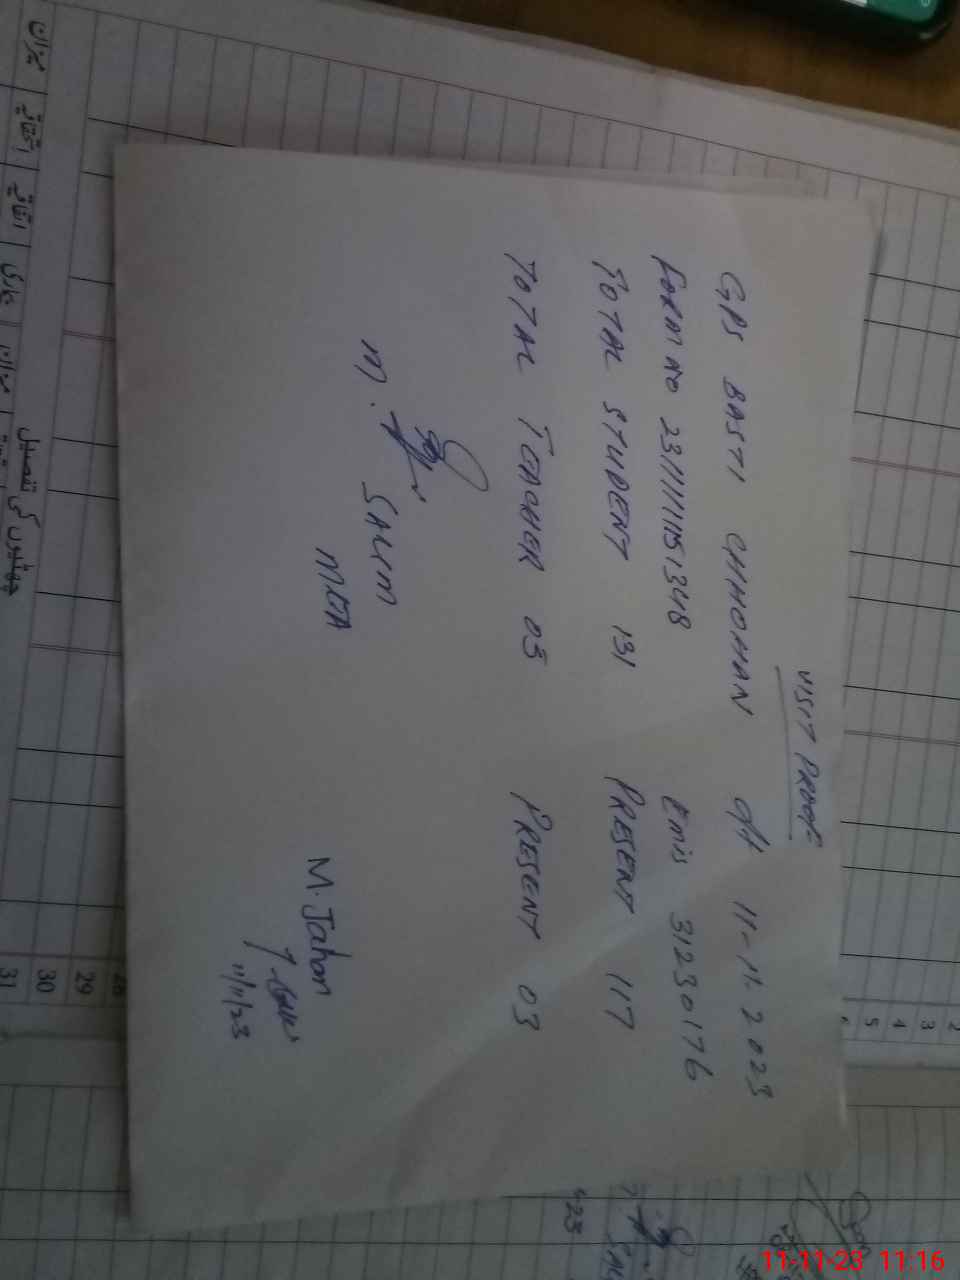 VISIT PROOF
GPS BASTI CHHOHAN dt 11-11-2023
FORM NO 231111151348 Emis 31230176
TOTAL STUDENT 131 PRESENT 117
TOTAL TEACHER 03 PRESENT 03
M. SALIM
MEA
M. Jahan
11/11/23
میزان
اتفاقیہ
اتفاقیہ
میزان
چھٹیوں کی تفصیل
28
29
30
31
2
3
4
5
11-11-23 11:16